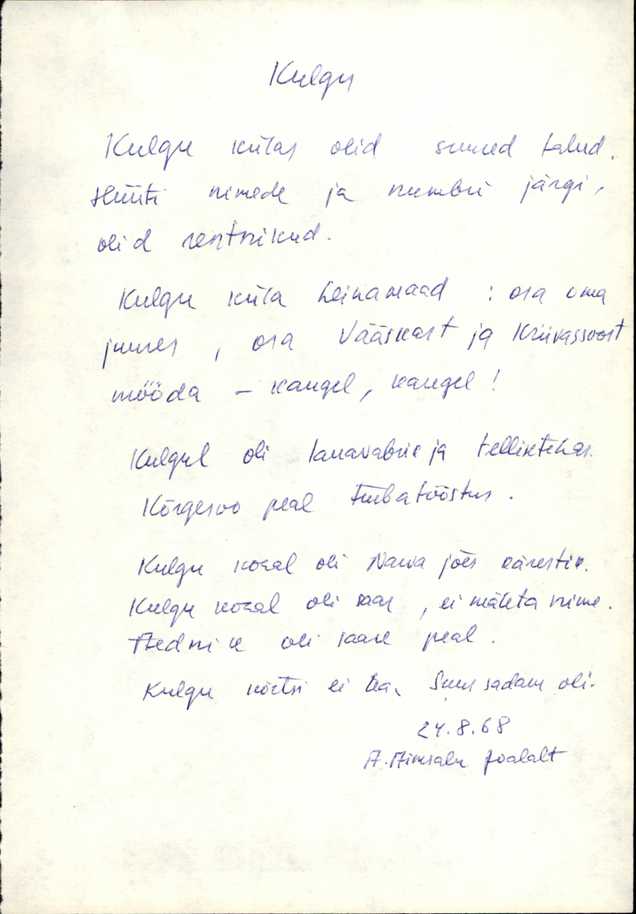 Kulgu
Kulgu külas olid suured talud.
Hüüti nimede ja numbri järgi,
olid rentnikud.
Kulgu küla heinamaad : osa oma
juures, osa Vääskast ja Kriivassoost
mööda – kaugel, kaugel!
Kulgul oli lauavabrik ja telliktehas.
Kõrgesoo peal turbatööstus.
Kulgu kozal oli Narva jões kärestik.
Kulgu kozal oli saar, ei mäleta nime.
oli saare peal.
Kulgu kõrtsi ei tea. Suur sadam oli.
24.8.68
A. Joalalt